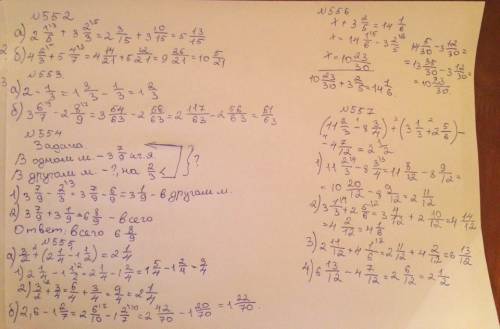 N552
а) 2 1/5 + 3 2/3 = 2 3/15 + 3 10/15 = 5 13/15
б) 4 2/3 + 5 4/7 = 4 14/21 + 5 12/21 = 9 26/21 = 10 5/21
N553
а) 2 - 1/3 = 1 3/3 - 1/3 = 1 2/3
б) 3 6/7 - 2 8/9 = 3 54/63 - 2 56/63 = 2 117/63 - 2 56/63 = 61/63
N554
Задача
В одном м. - 3 7/9 кг. я.
В другом м. - ?, на 2/3
}?
1) 3 7/9 - 2/3 = 3 7/9 - 6/9 = 3 1/9 - в другом м.
2) 3 7/9 + 3 1/9 = 6 8/9 - всего
Ответ: всего 6 8/9
N555
а) 3/2 + (2 1/4 - 1 1/2) = 2 1/4
1) 2 1/4 - 1 1/2 = 2 1/4 - 1 2/4 = 1 5/4 - 1 2/4 = 3/4
2) 3/2 + 3/4 = 6/4 + 3/4 = 9/4 = 2 1/4
б) 2,6 - 1 2/7 = 2 6/10 - 1 2/7 = 2 42/70 - 1 20/70 = 1 22/70.
N556
x + 3 2/5 = 14 1/6
x = 14 1/6 - 3 2/5
14 5/30 - 3 12/30 =
= 13 35/30 - 3 12/30 =
= 10 23/30
x = 10 23/30
10 23/30 + 3 2/5 = 14 1/6
N557
(11 2/3 - 8 3/4) + (3 1/3 + 2 5/6) -
- 4 7/12 = 2 1/2
1) 11 2/3 - 8 3/4 = 11 8/12 - 8 9/12 =
= 10 20/12 - 8 9/12 = 2 11/12
3) 2 11/12 + 4 1/6 = 2 11/12 + 4 2/12 = 6 13/12
4) 6 13/12 - 4 7/12 = 2 6/12 = 2 1/2